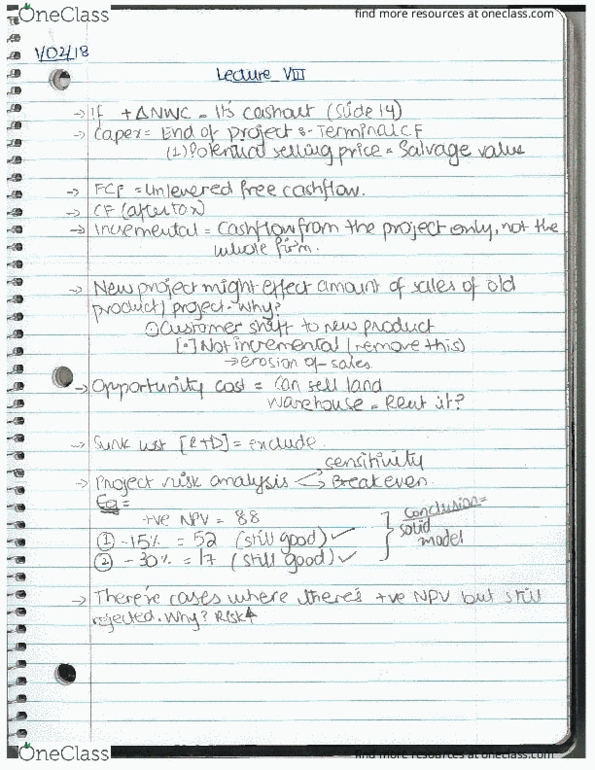 OneClass
find more resources at oneclass.com
1/02/18
Lecture VIII
→ If +ΔNWC = It's cashout (Slide 14)
→ Capex = End of project & Terminal CF
(1) Potential selling price = Salvage value
→ FCF = Unlevered free cashflow.
→ CF (after tax)
→ Incremental = Cashflow from the project only, not the
whole firm.
→ New project might effect amount of sales of old
product/project. Why?
① Customer shift to new product
[•] Not incremental (remove this)
→ erosion of sales
→ Opportunity cost = Can sell land
Warehouse = Rent it?
→ Sunk cost [R+D] = exclude.
sensitivity
→ Project risk analysis < Breakeven.
Eg =
+ve NPV = 88
① -15% = 52 (still good) ✓
② -30% = 17 (still good) ✓
Conclusion =
solid
model
→ There's cases where there's +ve NPV but still
rejected. Why? Risk↑
OneClass
find more resources at oneclass.com